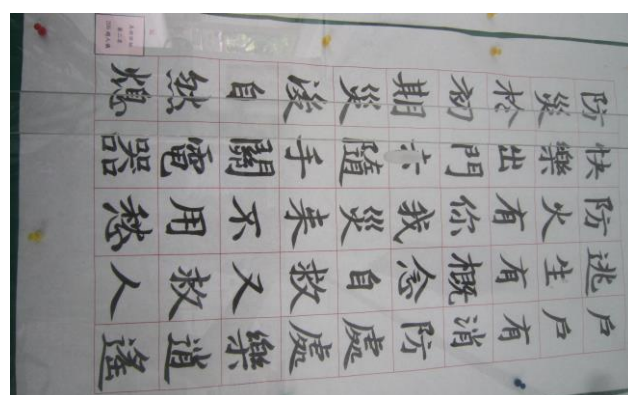 防災於初期災後自然熄
快樂出門隨手關電器
防火有你我災来不用愁
逃生有概念自救又救人
戶戶有消防處處樂逍遙